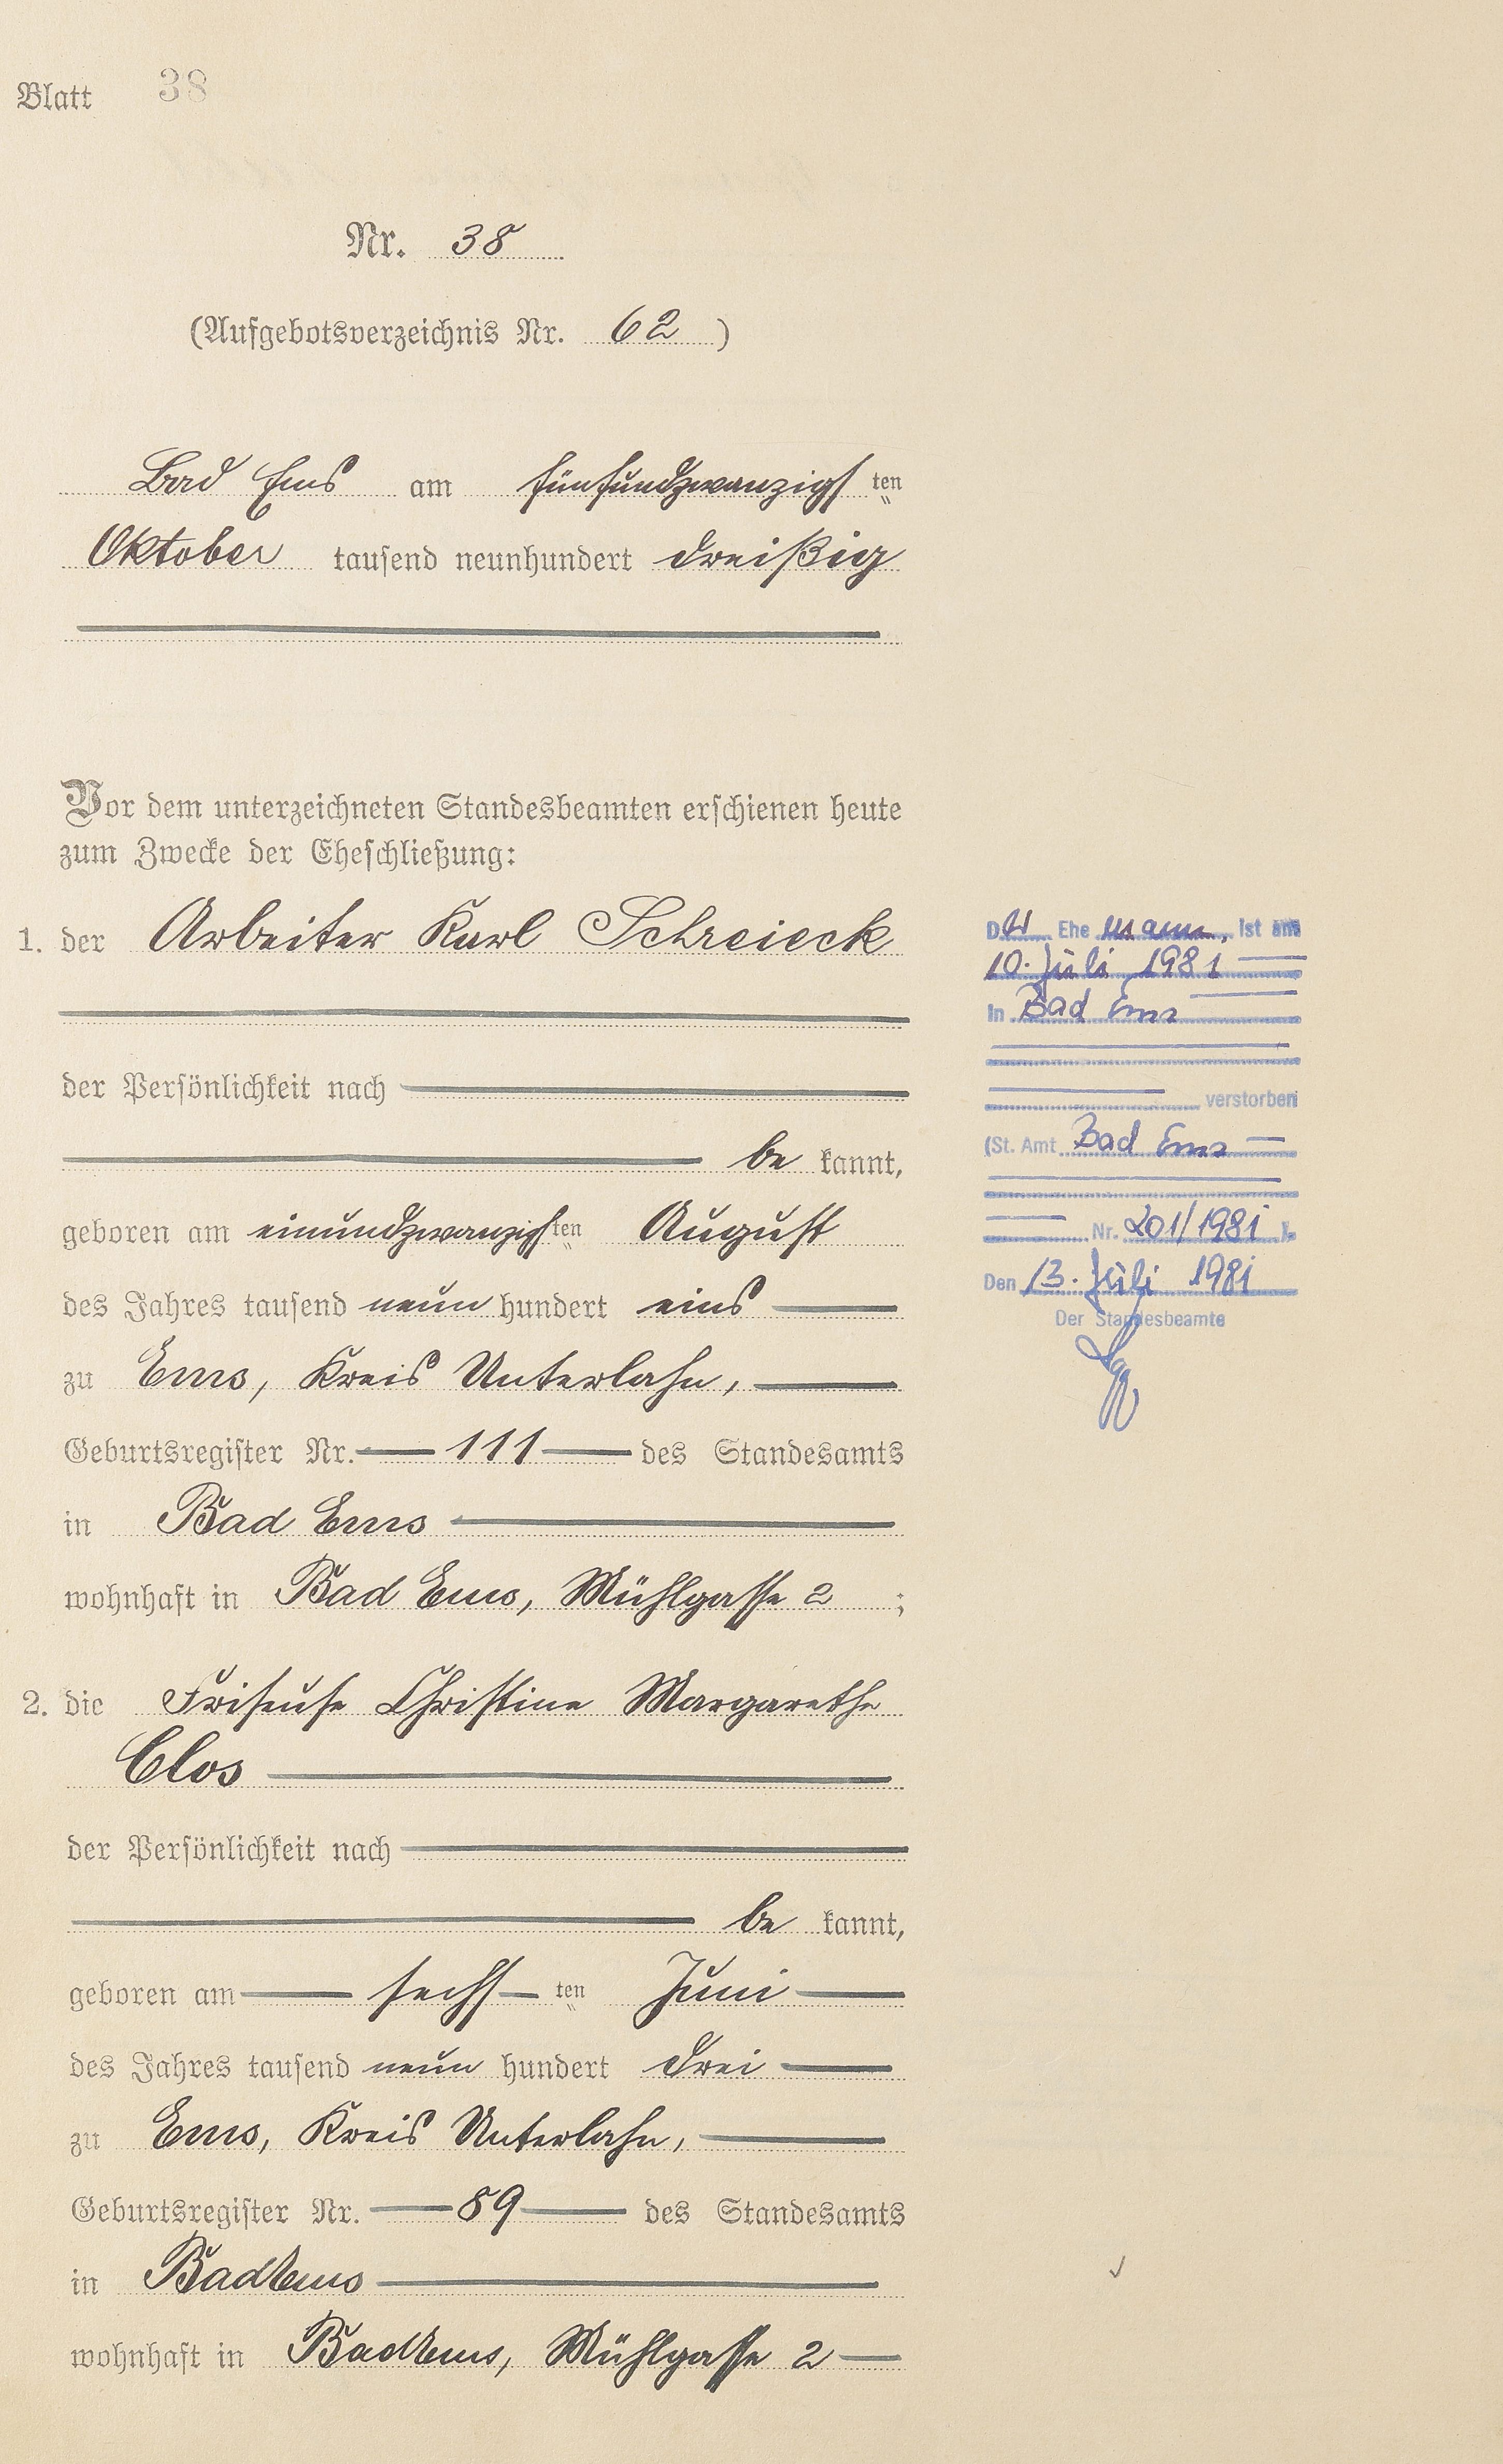 Blatt 38
Nr. 38
(Aufgebotsverzeichnis Nr. 62)
Bad Ems am fünfundzwanzigsten
Oktober tausend neunhundert dreißig
Vor dem unterzeichneten Standesbeamten erschienen heute
zum Zwecke der Eheschließung:
1. der Arbeiter Karl Schreieck
der Persönlichkeit nach
be kannt,
geboren am einundzwanzigsten August
des Jahres tausend neun hundert eins
zu Ems, Kreis Unterlahn,
Geburtsregister Nr. 111 des Standesamts
in Bad Ems
wohnhaft in Bad Ems, Mühlgasse 2 ;
2. die Friseuse Christine Margarethe
Clos
der Persönlichkeit nach
be kannt,
geboren am sechsten Juni
des Jahres tausend neun hundert drei
zu Ems, Kreis Unterlahn,
Geburtsregister Nr. 89 des Standesamts
in Bad Ems
wohnhaft in Bad Ems, Mühlgasse 2
Der Ehemann, ist am
10. Juli 1981
In Bad Ems
verstorben
(St. Amt Bad Ems
Nr. 201/1981 ).
Den 13. Juli 1981
Der Standesbeamte